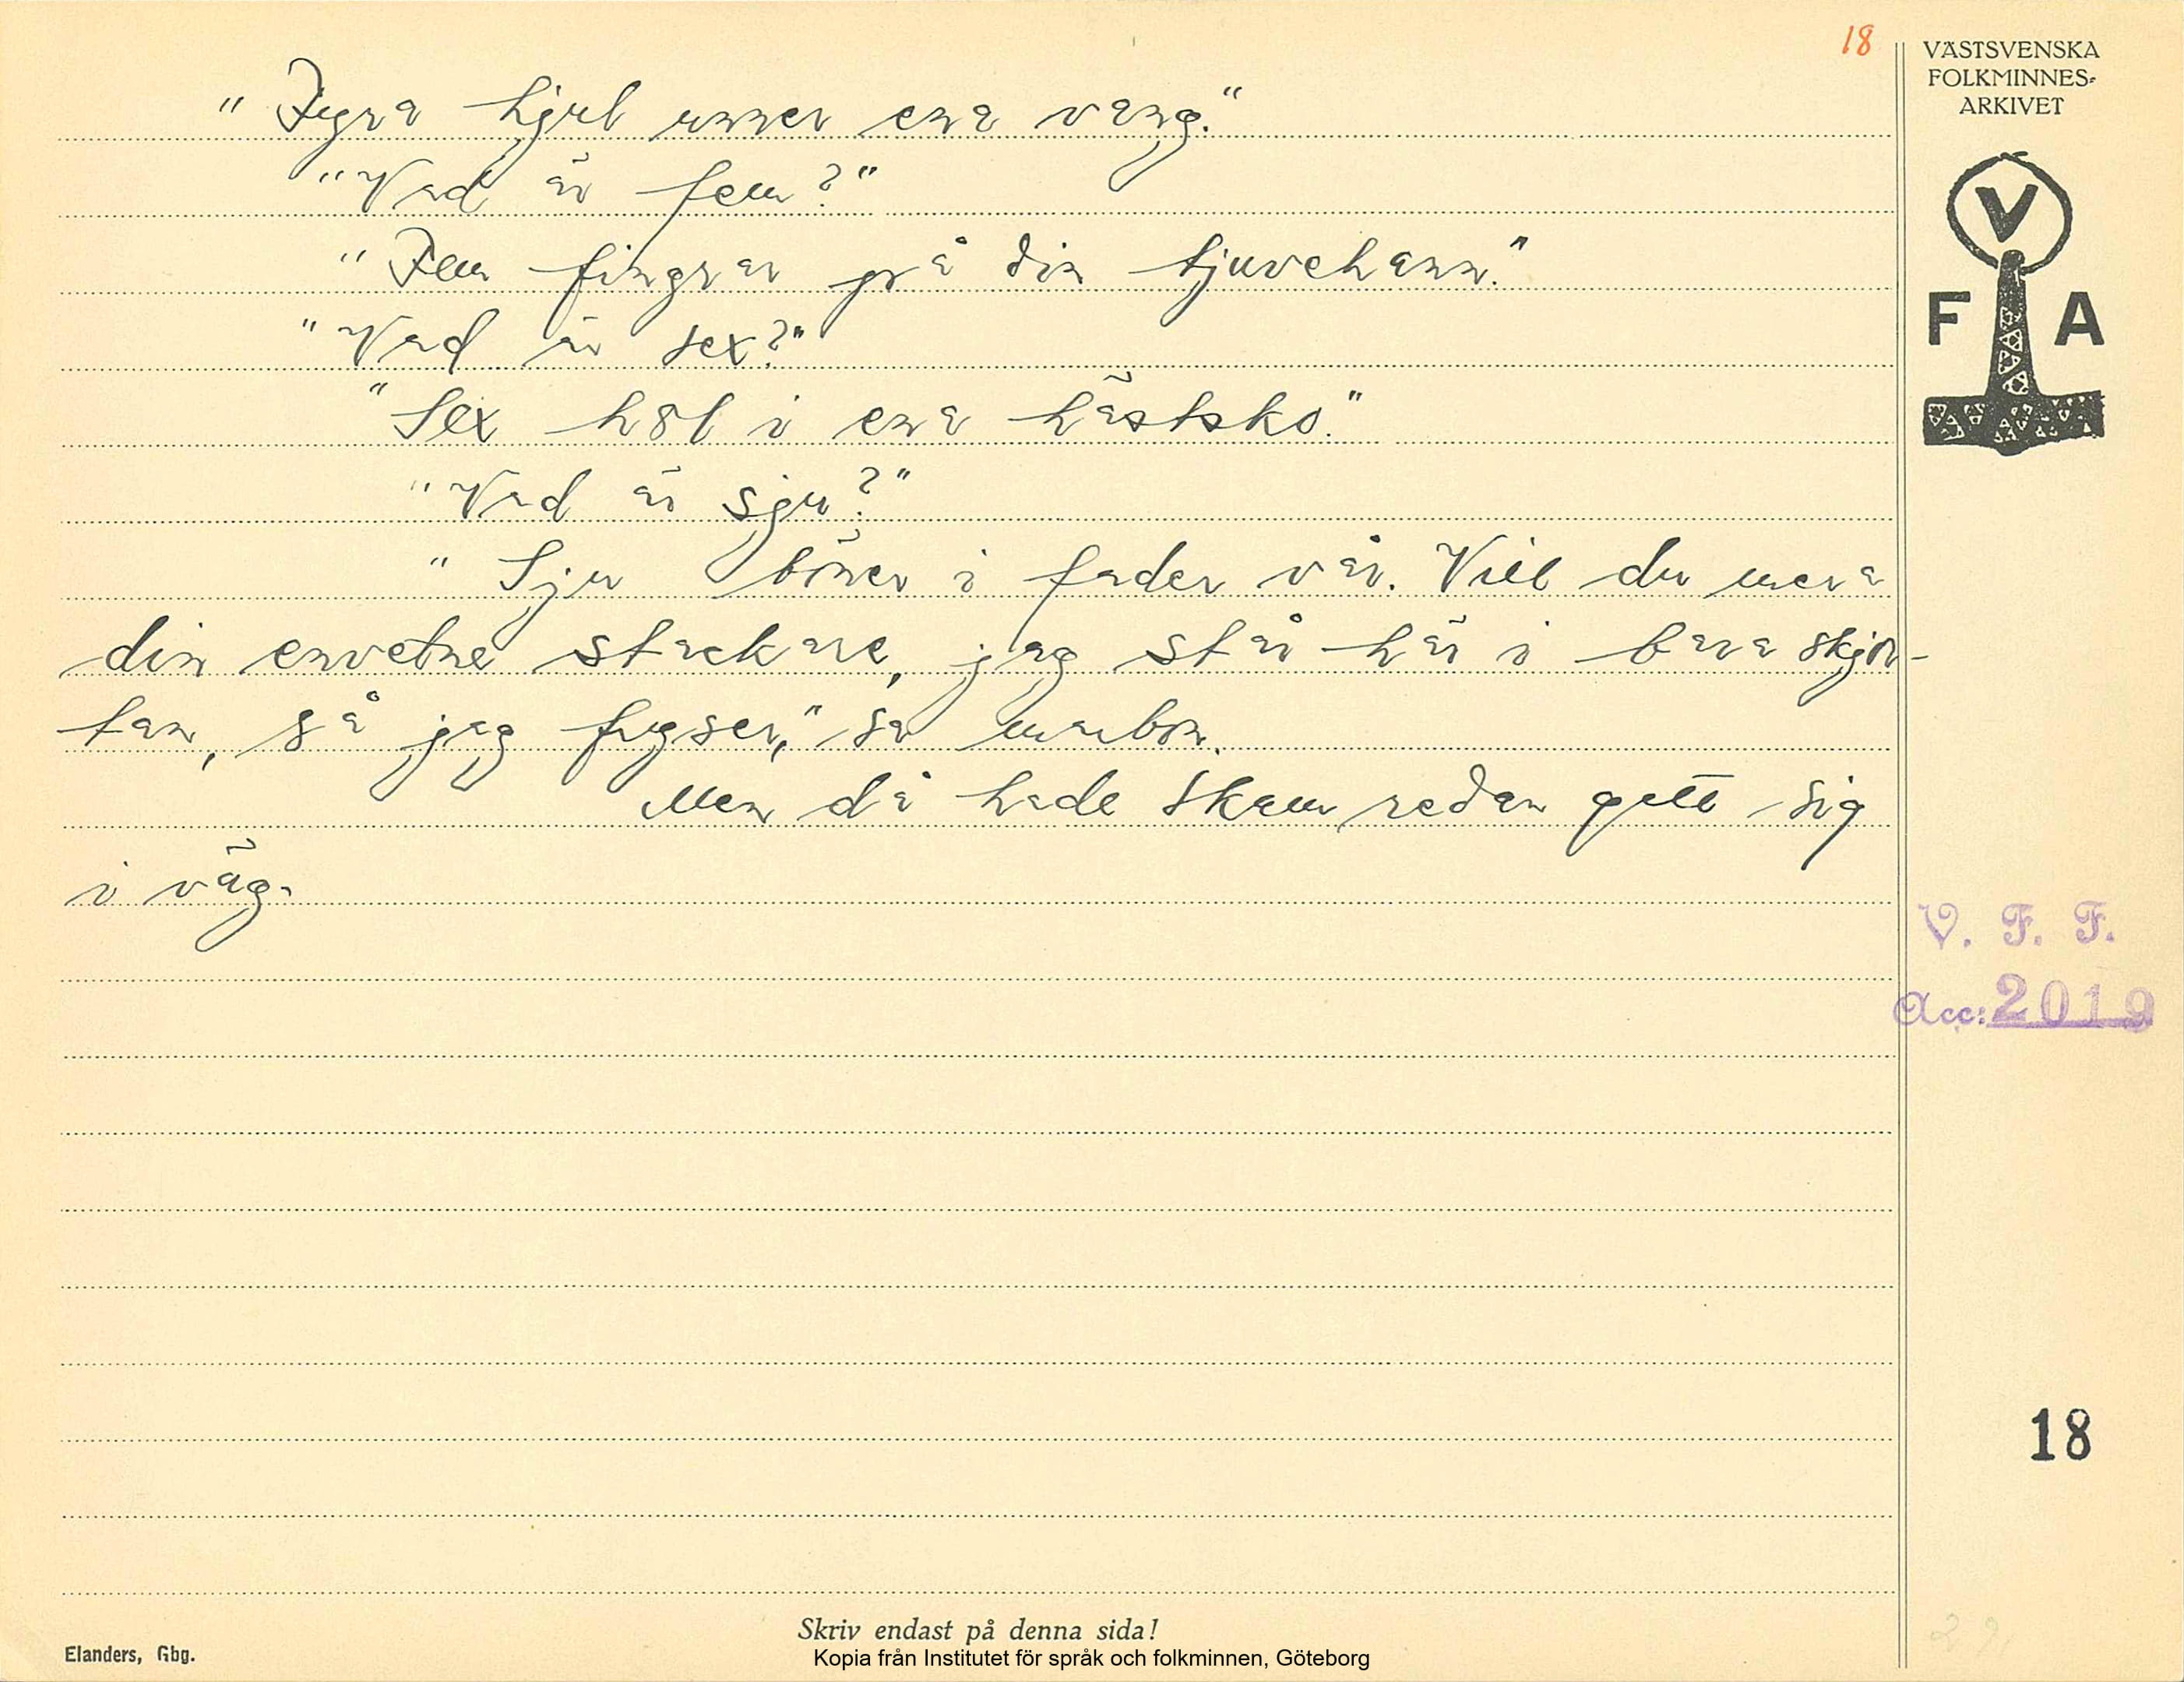 18
"Fyra hjul unner ena vang."
"Vad är fem?"
"Fem fingrar på din tjuvehann."
"Vad är sex?"
"Sex hål i ena hästsko."
"Vad är sju?"
"Sju böner i fader vår. Vill du mera
din envetne stackare, jag står här i bara skjor-
tan, så jag fryser," sa
Men då hade Skam redan gett sig
i väg.
VÄSTSVENSKA
FOLKMINNES-
ARKIVET
V
F A
V. F. F.
Acc: 2019
18
Skriv endast på denna sida!
Elanders, Gbg.
Kopia från Institutet för språk och folkminnen, Göteborg